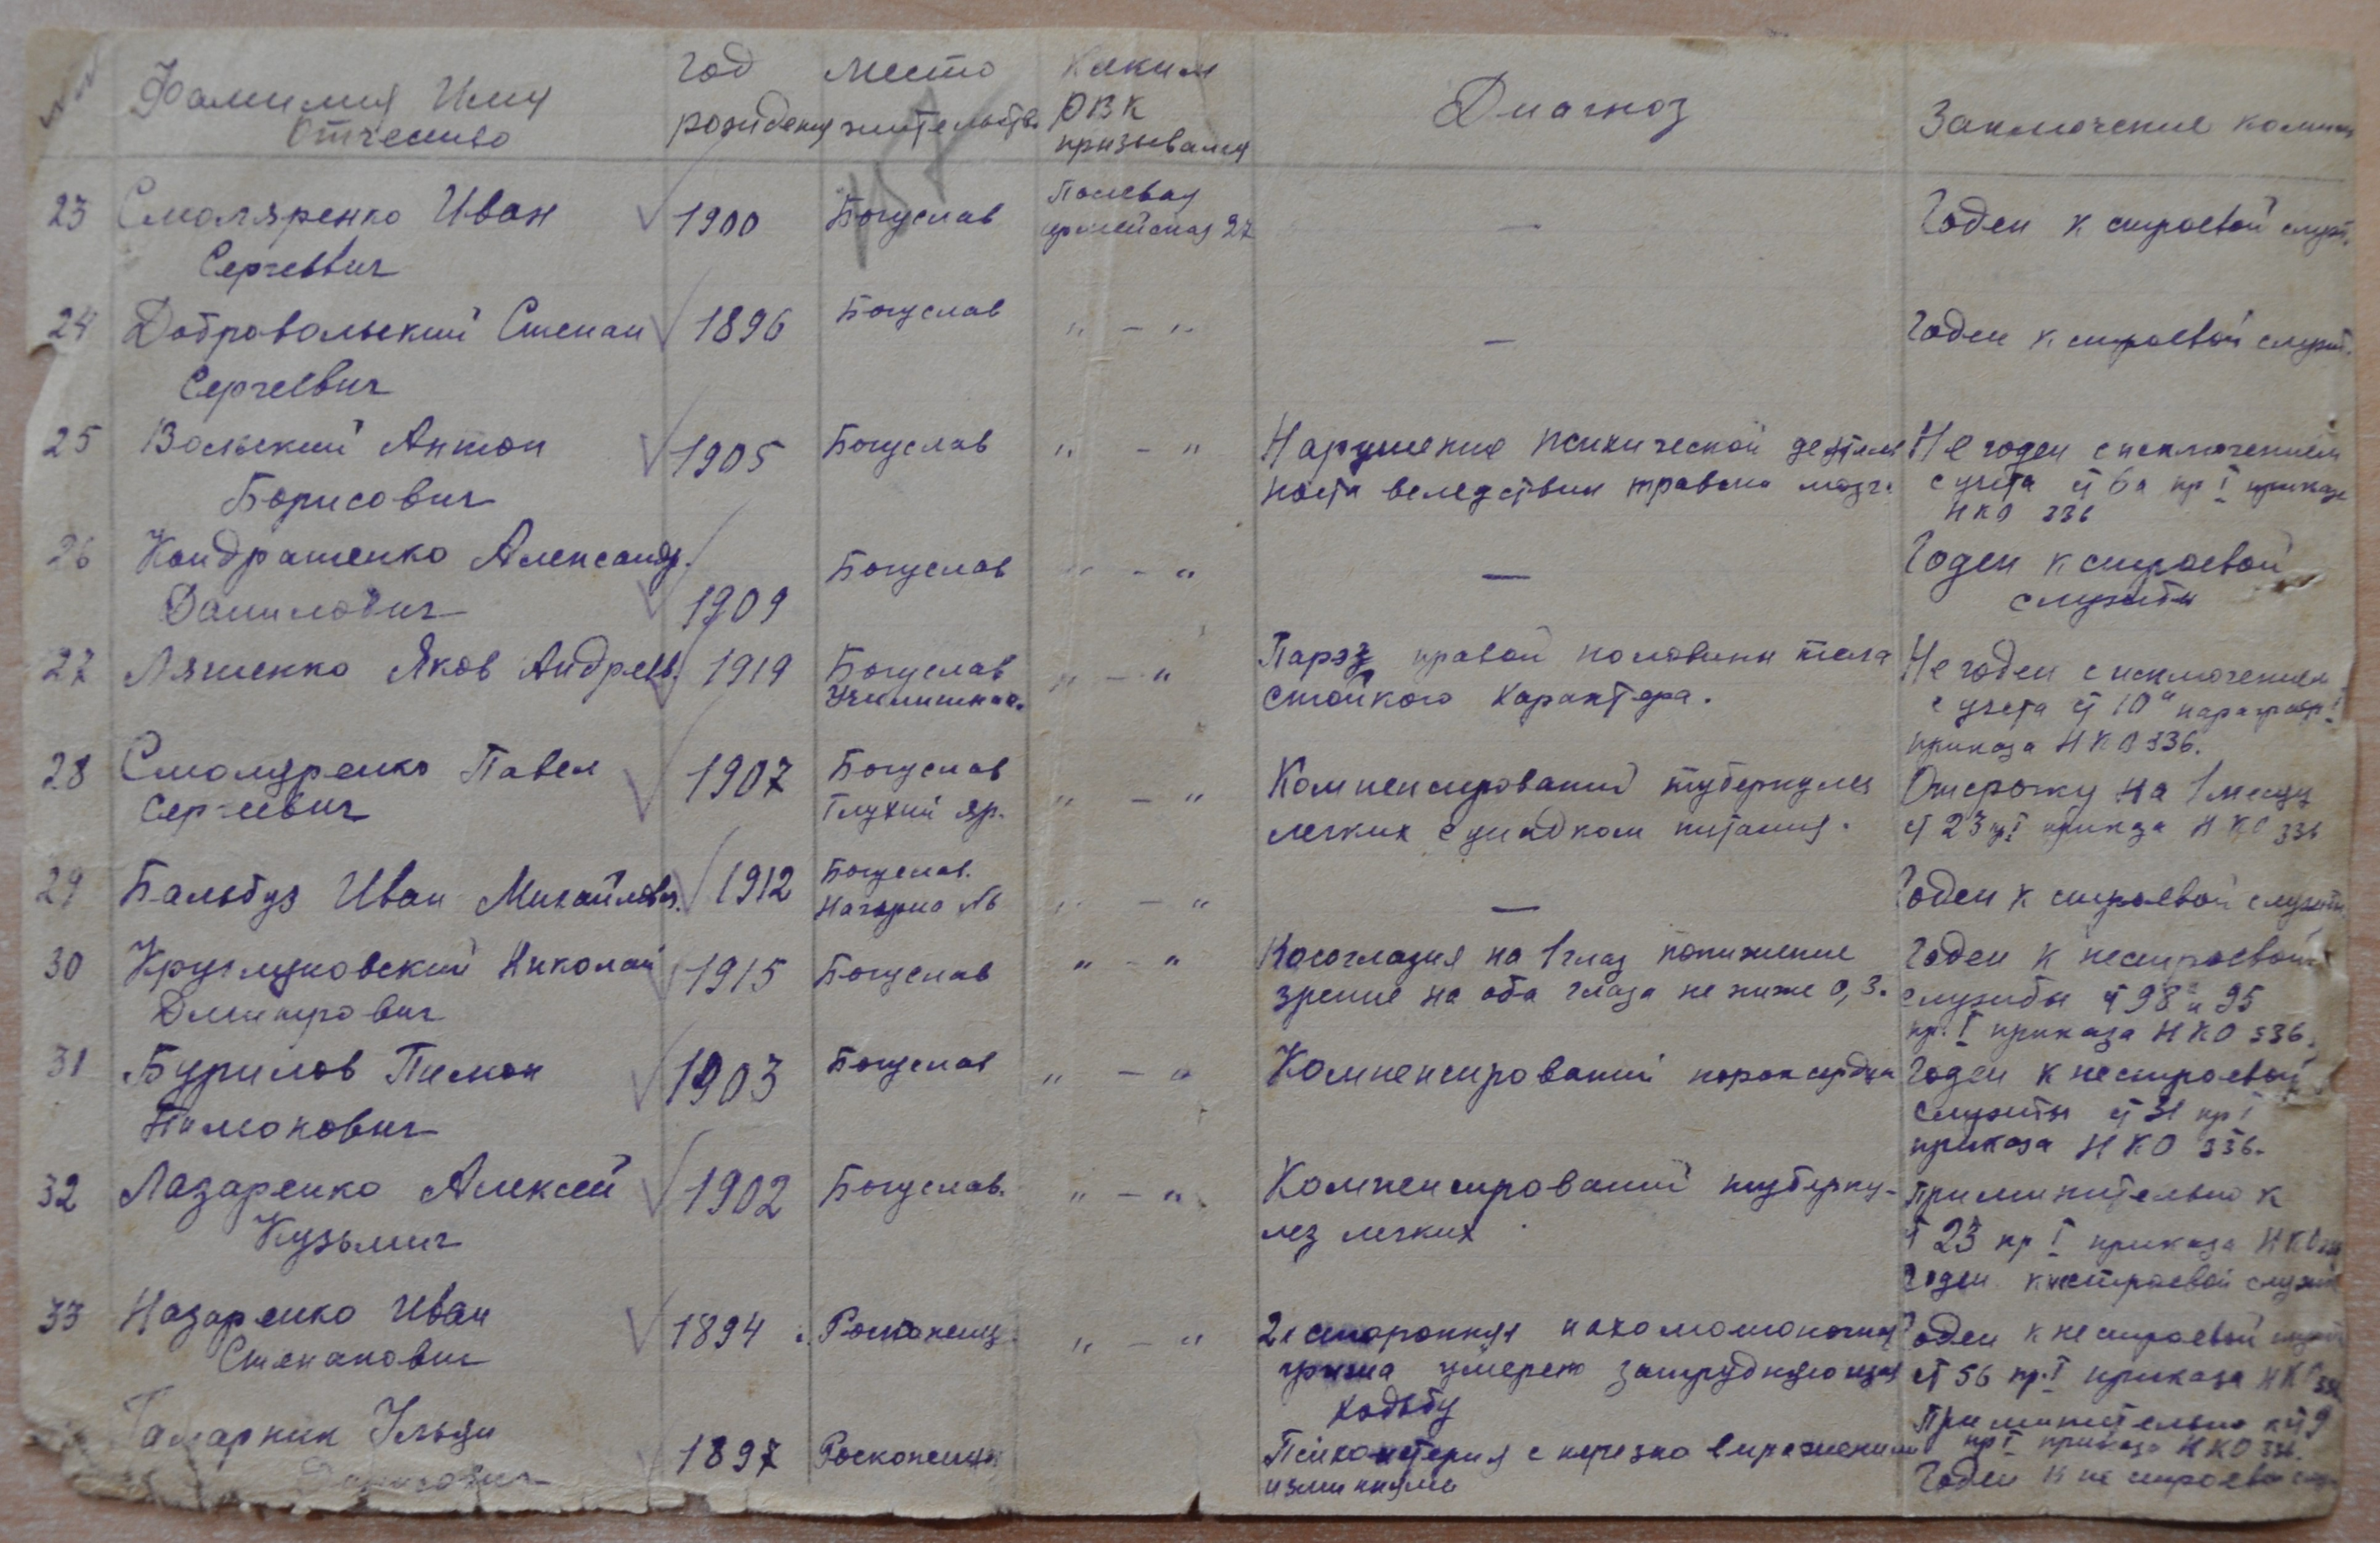 Фамилия Имя Отчество | год рождения | место жительства | Каким РВК призывался | Диагноз | Заключение комис
23 Смоляренко Иван | 1900 | Богуслав | Полевая | — | Годен к строевой служ.
Сергеевич | армейская 27
24 Добровольский Степан | 1896 | Богуслав | " — " | — | Годен к строевой служб.
Сергеевич
25 Вольский Антон | 1905 | Богуслав | " — " | Нарушение психической деятель | Не годен с исключением
Борисович | ности вследствии травмы мозга | с учета ст 6а пр I приказа
НКО 336
26 Кондратенко Александр. | 1909 | Богуслав | " — " | — | Годен к строевой
Данилович | службы
27 Ляшенко Яков Андреев. | 1919 | Богуслав | " — " | Парэз правой половины тела | Не годен с исключением
Училищная. | стойкого характера. | с учета ст 10" параграф I
приказа НКО 336.
28 Смоляренко Павел | 1907 | Богуслав | " — " | Компенсированый туберкулез | Отсрочку на 1 месяц
Сергеевич | Глухий яр. | легких с упадком питания. | ст 23 п I приказа НКО 336
29 Бальбуз Иван Михайлович. | 1912 | Богуслав. | " — " | — | Годен к строевой службы
Нагорна №6
30 Круглуновский Николай | 1915 | Богуслав | " — " | Косоглазия на 1 глаз понижение | Годен к нестроевой
Дмитрович | зрение на оба глаза не ниже 0,3. | службы ст 98 и 95
пр. I приказа НКО 336.
31 Бурилов Пимон | 1903 | Богуслав | " — " | Компенсированый порок сердца | Годен к нестроевой
Пимонович | службы ст 31 пр I
приказа НКО 336.
32 Лазаренко Алексей | 1902 | Богуслав. | " — " | Компенсированый туберку- | Применительно к
Кузьмич | лез легких | ст 23 пр I приказа НКО 336
Годен к нестроевой служб
33 Назаренко Иван | 1894 | " — " | 2х сторонняя | Годен к нестроевой служб
Степанович | грыжа умерено затрудняющая | ст 56 пр. I приказа НКО 336
ходьбу | Применительно к ст 9
Ильяш | 1897 | с нерезко выражеными | пр I приказа НКО 336.
изминиями | Годен к не строевой